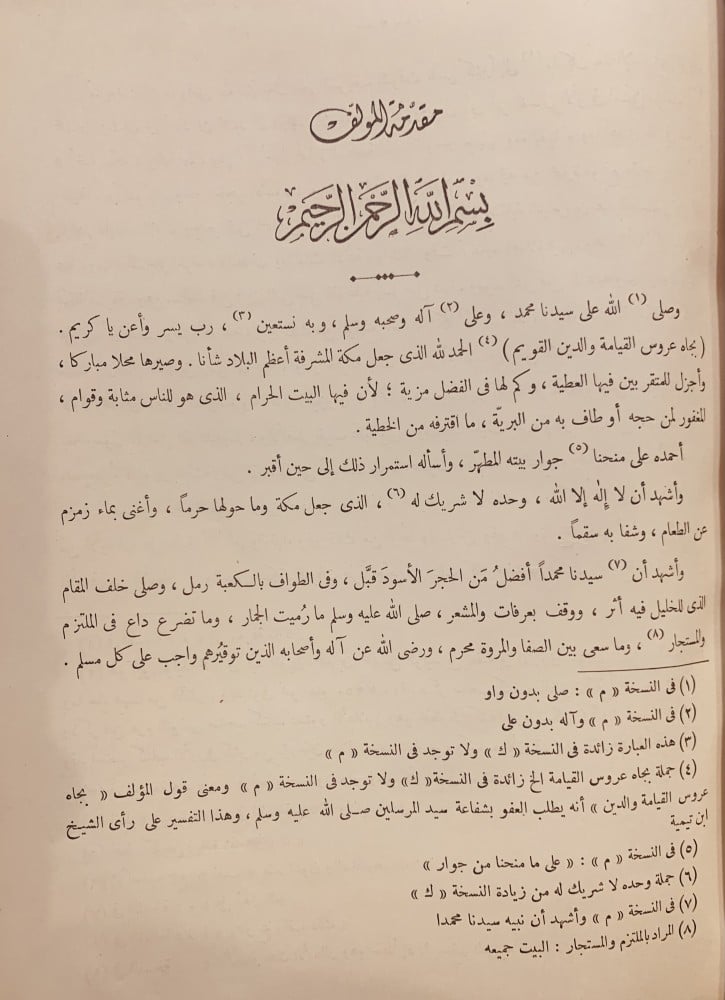 مقدمة المؤلف
بسم الله الرحمن الرحيم
وصلى (١) الله على سيدنا محمد ، وعلى (٢) آله وصحبه وسلم ، وبه نستعين (٣) ، رب يسر وأعن يا كريم .
( بجاه عروس القيامة والدين القويم ) (٤) الحمد لله الذى جعل مكة المشرفة أعظم البلاد شأنا . وصيرها محلا مباركا ،
وأجزل للمتقر بين فيها العطية ، وكم لها فى الفضل مزية ؛ لأن فيها البيت الحرام ، الذى هو للناس مثابة وقوام ،
المغفور لمن حجه أو طاف به من البريّة ، ما اقترفه من الخطية .
أحمده على منحنا (٥) جوار بيته المطهّر ، وأسأله استمرار ذلك إلى حين أقبر .
وأشهد أن لا إلٰه إلا الله ، وحده لا شريك له (٦) ، الذى جعل مكة وما حولها حرماً ، وأغنى بماء زمزم
عن الطعام ، وشفا به سقماً .
وأشهد أن (٧) سيدنا محمداً أفضلُ مَن الحجرَ الأسودَ قبَّل ، وفى الطواف بالكعبة رمل ، وصلى خلف المقام
الذى للخليل فيه أثر ، ووقف بعرفات والمشعر ، صلى الله عليه وسلم ما رُميت الجمار ، وما تضرع داع فى الملتزم
والمستجار (٨) ، وما سعى بين الصفا والمروة محرم ، ورضى الله عن آله وأصحابه الذين توقيُرهم واجب على كل مسلم .
(١) فى النسخة « م » : صلى بدون واو
(٢) فى النسخة « م » وآله بدون على
(٣) هذه العبارة زائدة فى النسخة « ك » ولا توجد فى النسخة « م »
(٤) جملة بجاه عروس القيامة الخ زائدة فى النسخة « ك » ولا توجد فى النسخة « م » ومعنى قول المؤلف « بجاه
عروس القيامة والدين » أنه يطلب العفو بشفاعة سيد المرسلين صلى الله عليه وسلم ، وهذا التفسير على رأى الشيخ
ابن تيمية
(٥) فى النسخة « م » : « على ما منحنا من جوار »
(٦) جملة وحده لا شريك له من زيادة النسخة « ك »
(٧) فى النسخة « م » وأشهد أن نبيه سيدنا محمدا
(٨) المراد بالملتزم والمستجار : البيت جميعه